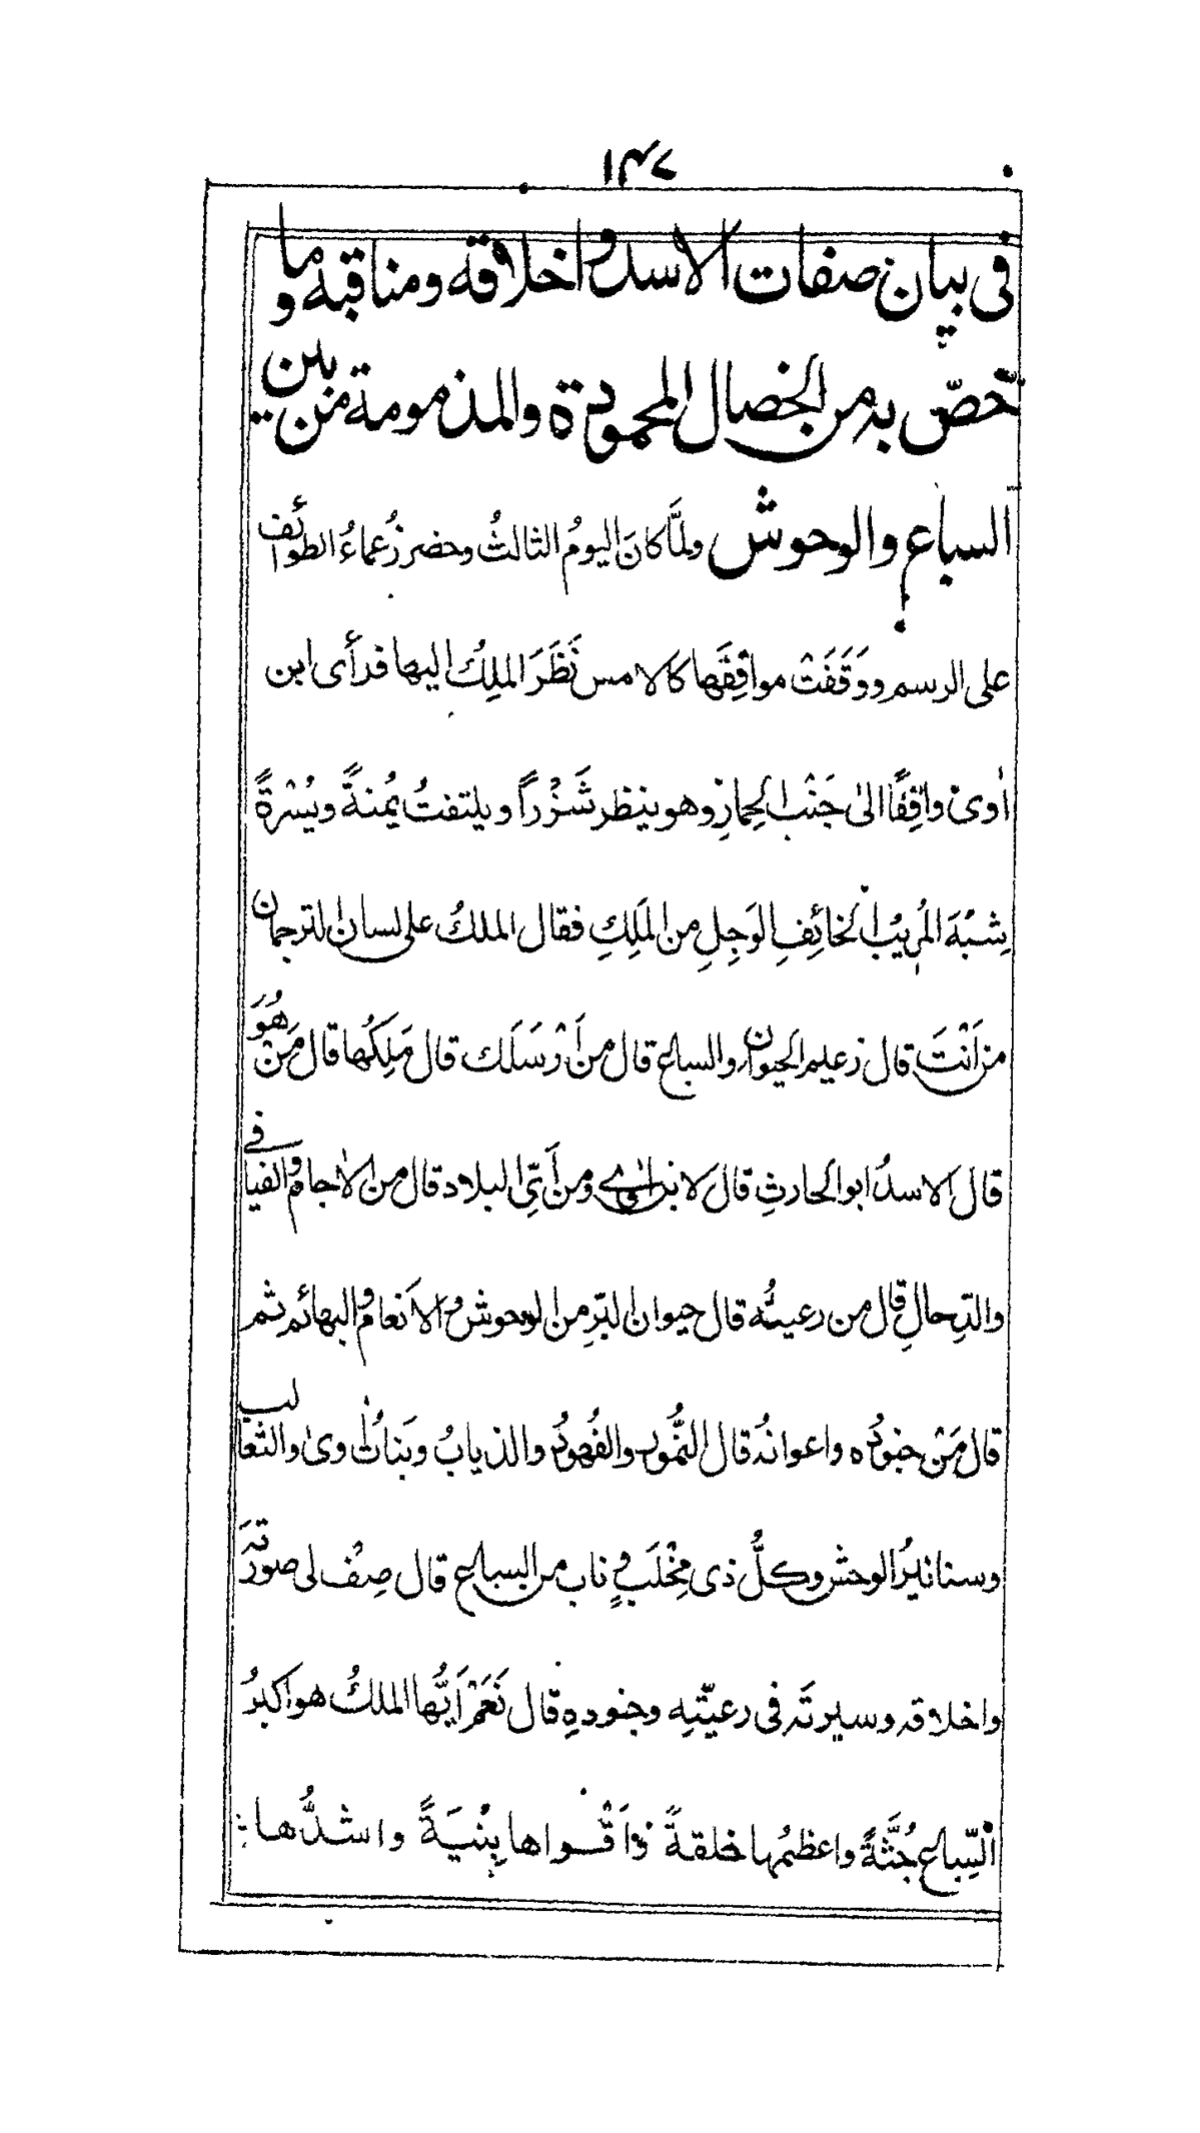 ١٤٧
فى بيان صفات الاسد واخلاقه ومناقبه وما
خصّ به من الخصال المحمودة والمذمومة من بين
السباع والوحوش ولمَّا كانَ اليومُ الثالثُ وحضر زُعماءُ الطوائف
على الرسم ووَقَفَتْ مواقِفَها كالامس نَظَرَ الملِكُ اليها فرأى ابن
اٰوىٰ واقِفًا الىٰ جَنْب الحِمارِ وهو ينظر شَزْراً ويلتفتُ يُمنةً ويُسْرةً
شِبْهَ المُرِيْب الخائِفِ الوَجِلِ من المَلِكِ فقال الملكُ على لسان الترجمان
من اَنْتَ قال زعيم الحيوان والسباع قال من اَرْسَلَك قال مَلِكُها قال مَنْ هُوَ
قال الاسدُ ابو الحارثِ قال لابن اٰوى ومن اَىِّ البلاد قال من الاٰجام والفيافى
والدِّحالِ قال من رعيتُه قال حيوان البَرِّ من الوحوش والاَنعام والبهائم ثم
قال مَنْ جنودُه واعوانهُ قال النُّمُور والفُهودُ والذيابُ وبَناتُ اٰوىٰ والثعالب
وسنانيرُ الوحش وكلُّ ذى مِخْلَبٍ وناب من السباع قال صِفْ لى صورتَه
واخلاقه وسيرتَه فى رعيّتِه وجنودهِ قال نَعَمْ اَيُّها الملكُ هو اكبرُ
السِّباع جُثَّةً واعظمُها خلقةً واَقْواها بِنْيَةً واشدُّها